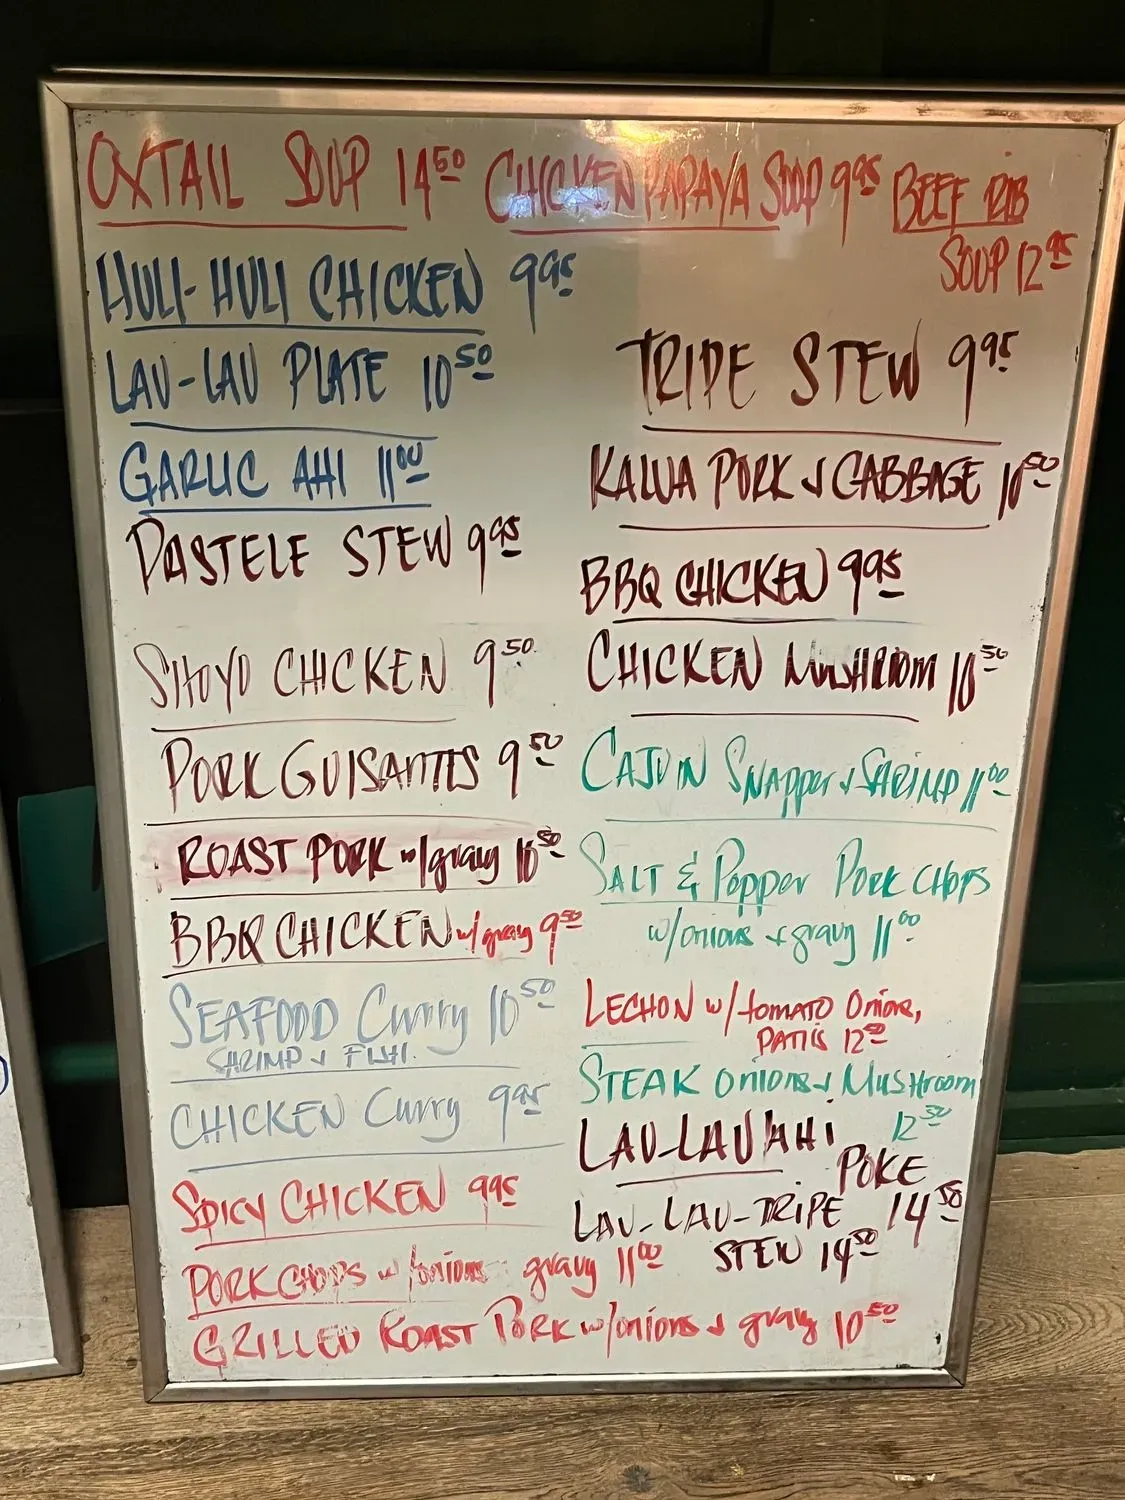 OXTAIL SOUP 14 50 CHICKEN PAPAYA SOUP 9 95 BEEF RIB
SOUP 12 95
HULI-HULI CHICKEN 9 95
LAU-LAU PLATE 10 50
GARLIC AHI 11 00
PASTELE STEW 9 95
SHOYO CHICKEN 9 50
PORK GUISANTES 9 50
ROAST PORK w/gravy 10 50
BBQ CHICKEN w/gravy 9 50
SEAFOOD Curry 10 50
SHRIMP & FISH
CHICKEN Curry 9 95
SPICY CHICKEN 9 95
PORK CHOPS w/onions gravy 11 00
GRILLED ROAST PORK w/onions & gravy 10 50
TRIPE STEW 9 95
KALUA PORK & CABBAGE 10 50
BBQ CHICKEN 9 95
CHICKEN MUSHROOM 10 50
CAJUN SNAPPER & SHRIMP 11 00
SALT & Pepper PORK CHOPS
w/onions & gravy 11 00
LECHON w/tomato Onions,
PATIS 12 50
STEAK Onions & Mushroom
12 50
LAU-LAU AHI
POKE
14 50
LAU-LAU-TRIPE
STEW 14 50